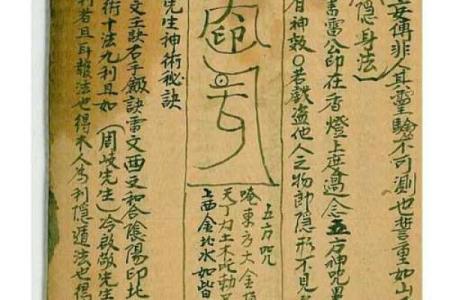 妄傳非人其靈驗不可測也誓重如山
隱身法
書雷公印在香燈上度過念五方神咒畢
自有神效〇若戲盜他人之物即隱形不見
印
五方咒
唵東方大金
天丁力士木吒勅
上西金北水如皆
先生神術秘訣
文王訣右手劔訣雷文西文和合陰陽印北
術十法九利且如(周岐先生)冷啟敬先生
利者且耳報法也得未人為利隱遁法也得